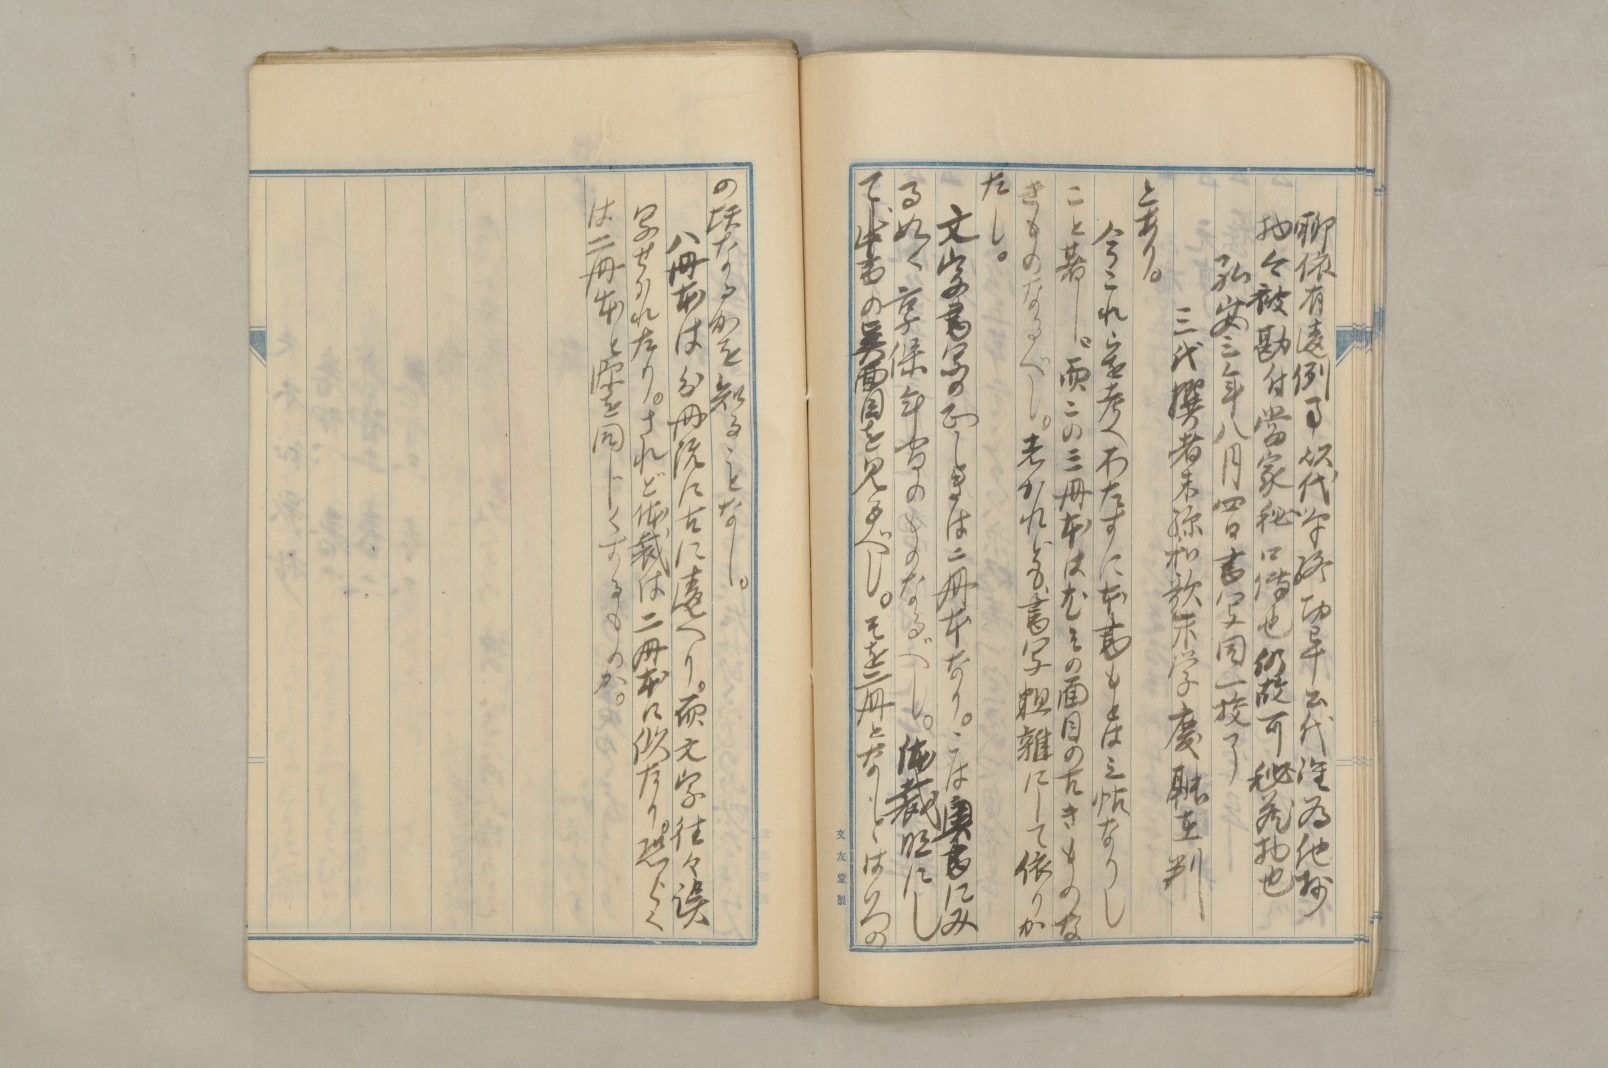 聊依有遠例事以代々終功畢云代注為他抄
抄今被勘付当家秘口傳也仍故可秘蔵抄也
弘安三年八月四日書写同一校了
三代撰者末孫和歌末学慶融在判
とあり。
今これらを考へわたすにお書もとは三帖なりし
こと著し。而この三冊本は尤その面目の古きものな
きものなるべし。されども書写粗雑にして依りか
たし。
文字書写の正しきは二冊本なり。こは奥書にみ
る如く享保年間のものなるべし。体裁昭にし
て此書の眞面目を見るべし。そを二冊となししはいつの
の頃なるかを知ることなし。
八冊本は分冊既に古に違へり。而文字往々誤
写せられたり。されど体裁は二冊本に似たり。恐らく
は二冊本と源を同じくするものか。
文友堂製